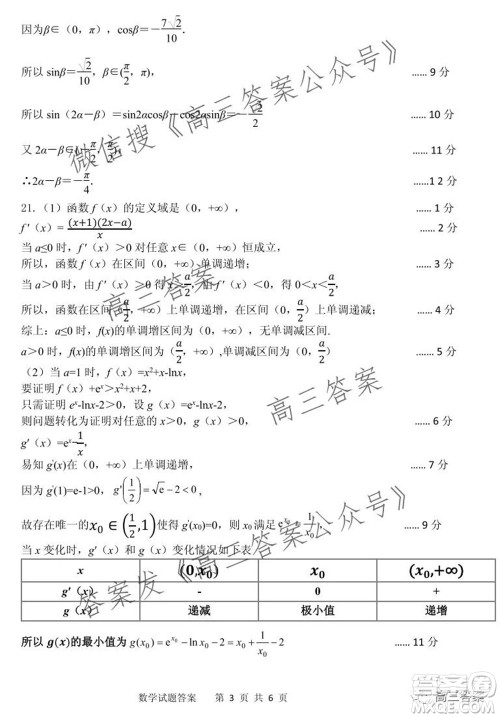 因为β∈（0，π），cosβ=−7√2/10.
所以 sinβ=√2/10，β∈(π/2，π) ...... 9 分
所以 sin（2α−β）=sin2αcosβ−cos2αsinβ=−√2/2 ...... 10 分
又 2α−β∈ ...... 11 分
∴2α−β=−π/4. ......1 2 分
21.（1）函数 f（x）的定义域是（0，+∞）， ...... 1 分
f ′（x）=(x+1)(2x−a)/x ...... 2 分
当 a≤0 时，f ′（x）＞0 对任意 x∈（0，+∞）恒成立，
所以，函数 f（x）在区间（0，+∞）单调递增； ...... 3 分
当 a＞0 时，由 f ′（x）＞0 得 x＞a/2，由 f ′（x）＜0 得 0＜x＜a/2，
所以，函数在区间（a/2，+∞）上单调递增，在区间（0，a/2）上单调递减； ...... 4 分
综上：a≤0 时，f(x)的单调增区间为（0，+∞），无单调减区间.
a＞0 时，f(x)的单调增区间为（a/2，+∞）,单调减区间为（0，a/2） ...... 5 分
（2）当 a=1 时，f（x）=x²+x-lnx，
要证明 f（x）+eˣ＞x²+x+2，
只需证明 eˣ-lnx-2＞0，设 g（x）=eˣ-lnx-2，
则问题转化为证明对任意的 x＞0，g（x）＞0， ...... 6 分
g′（x）=eˣ−1/x，
易知 g′(x)在（0，+∞）上单调递增， ...... 7 分
因为 g′(1)=e-1>0，g′(1/2)=√e−2<0，
故存在唯一的x₀∈(1/2,1)使得 g′(x₀)=0，则 x₀满足 ...... 9 分
当 x 变化时，g′（x）和 g（x）变化情况如下表
x (0,x₀) x₀ (x₀,+∞)
g′（x） - 0 +
g（x） 递减 极小值 递增
所以 g(x)的最小值为 g(x₀)=e^x₀−ln x₀−2=x₀+1/x₀−2 ...... 11 分
数学试题答案 第 3 页 共 6 页
微信搜《高三答案公众号》
高三答案
高三答案
答案发《高三答案公众号》
高三答案